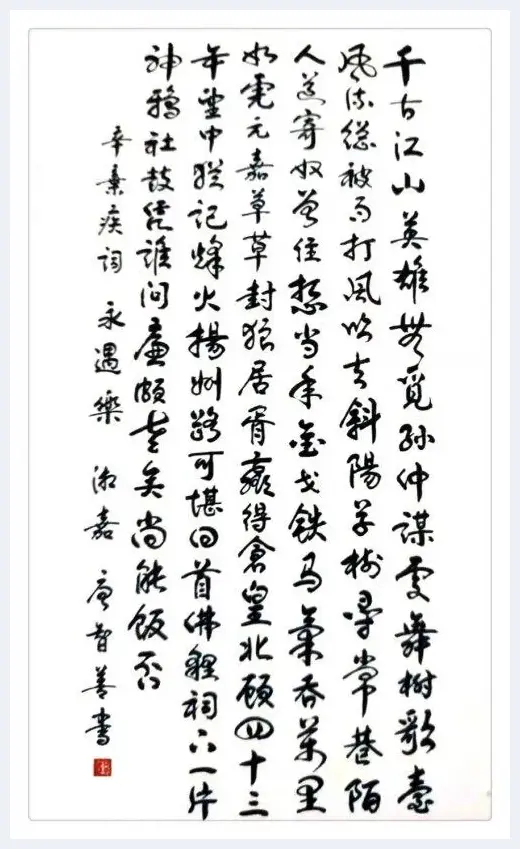 千古江山英雄無覓孫仲謀處舞榭歌臺
風流總被雨打風吹去斜陽草樹尋常巷陌
人道寄奴曾住想當年金戈鐵馬氣吞萬里
如虎元嘉草草封狼居胥贏得倉皇北顧四十三
年望中猶記烽火揚州路可堪回首佛貍祠下一片
神鴉社鼓憑誰問廉頗老矣尚能飯否
辛棄疾詞 永遇樂 湘嘉 唐智善書